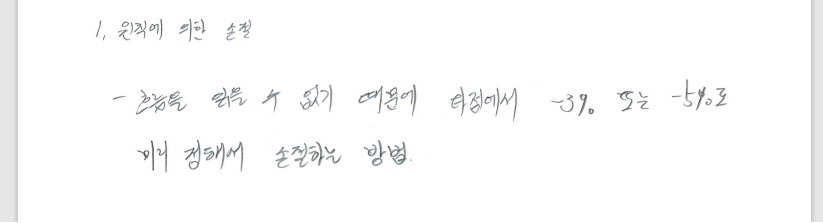 1. 원칙에 의한 손절
- 흐름을 읽을 수 없기 때문에 타점에서 -3% 또는 -5%로
미리 정해서 손절하는 방법.